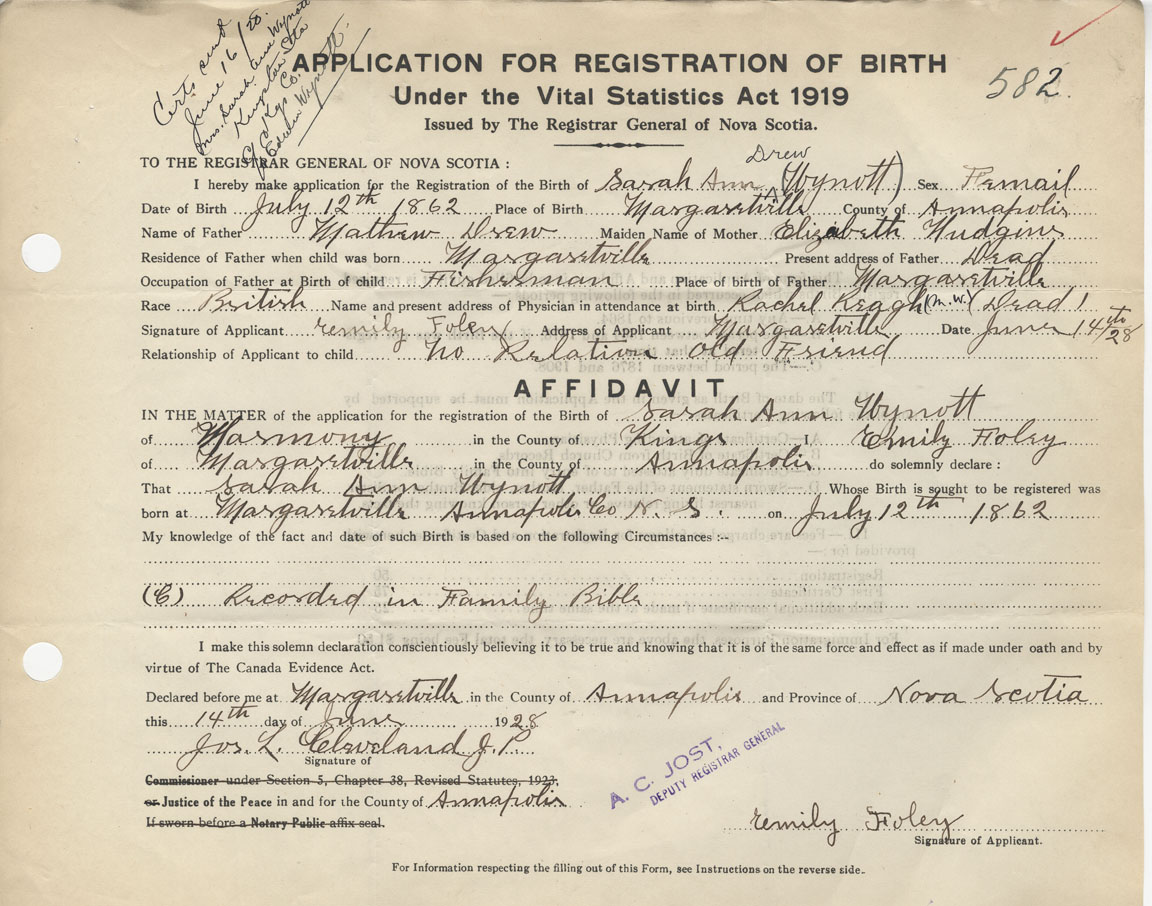 Certs sent
June 16/28.
Mrs. Sarah Ann Wynott
Kingston Sta
Kgs Co.
c/o Edwin Wynott.
582.
APPLICATION FOR REGISTRATION OF BIRTH
Under the Vital Statistics Act 1919
Issued by The Registrar General of Nova Scotia.
TO THE REGISTRAR GENERAL OF NOVA SCOTIA :
Drew
I hereby make application for the Registration of the Birth of Sarah Ann (Wynott) Sex Femail
Date of Birth July 12th 1862 Place of Birth Margaretville County of Annapolis
Name of Father Mathew Drew Maiden Name of Mother Elizabeth Hudgins
Residence of Father when child was born Margaretville Present address of Father Dead
Occupation of Father at Birth of child Fisherman Place of birth of Father Margaretville
Race British Name and present address of Physician in attendance at birth Rachel (M.W.) Dead
Signature of Applicant Emily Foley Address of Applicant Margaretville Date June 14th/28
Relationship of Applicant to child No Relation Old Friend
AFFIDAVIT
IN THE MATTER of the application for the registration of the Birth of Sarah Ann Wynott
of Harmony in the County of Kings I, Emily Foley
of Margaretville in the County of Annapolis do solemnly declare :
That Sarah Ann Wynott Whose Birth is sought to be registered was
born at Margaretville Annapolis Co N. S. on July 12th 1862
My knowledge of the fact and date of such Birth is based on the following Circumstances :--
(C) Recorded in Family Bible
I make this solemn declaration conscientiously believing it to be true and knowing that it is of the same force and effect as if made under oath and by
virtue of The Canada Evidence Act.
Declared before me at Margaretville in the County of Annapolis and Province of Nova Scotia
this 14th day of June 1928
Jos. L. Cleveland J.P.
Signature of
Commissioner under Section 5, Chapter 38, Revised Statutes, 1923,
or Justice of the Peace in and for the County of Annapolis
If sworn before a Notary Public affix seal.
A. C. JOST,
DEPUTY REGISTRAR GENERAL
Emily Foley
Signature of Applicant.
For Information respecting the filling out of this Form, see Instructions on the reverse side.